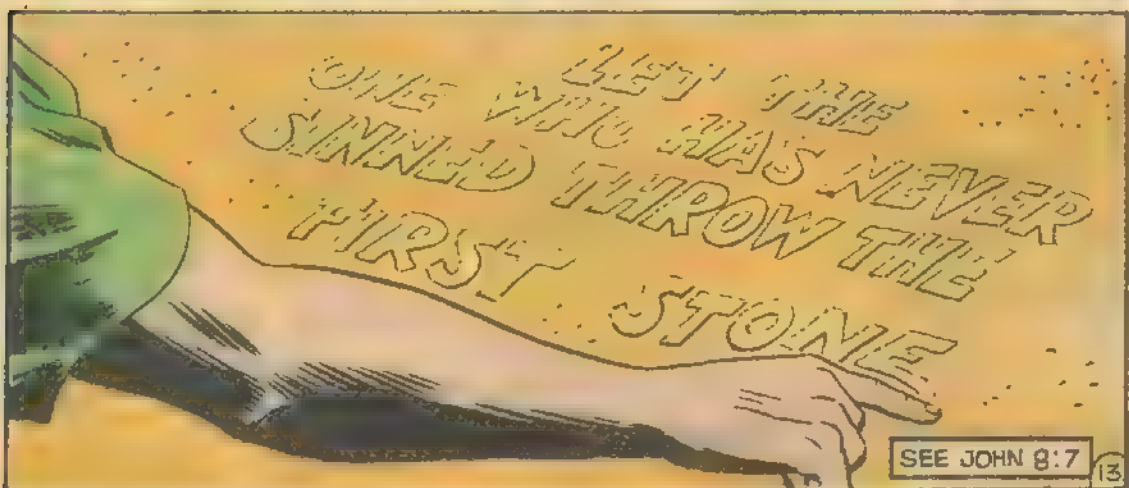 LET THE
ONE WHO HAS NEVER
SINNED THROW THE
FIRST STONE
SEE JOHN 8:7
13